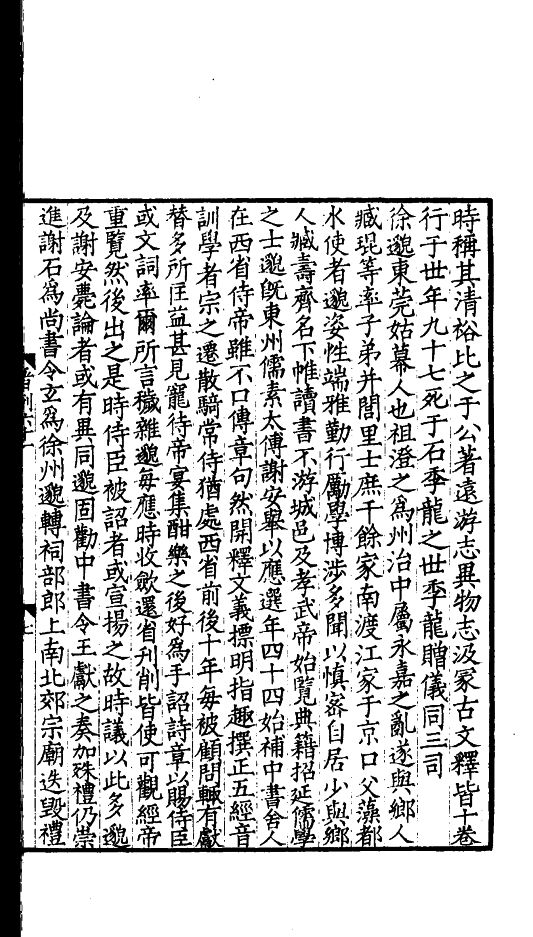 時稱其清裕比之于公著遠游志異物志汲冢古文釋皆十卷
行于世年九十七死于石季龍之世季龍贈儀同三司
徐邈東莞姑幕人也祖澄之爲州治中屬永嘉之亂遂與鄉人
臧琨等率子弟并閭里士庶千餘家南渡江家于京口父藻都
水使者邈姿性端雅勤行勵學博涉多聞以慎密自居少與鄉
人臧壽齊名下帷讀書不游城邑及孝武帝始覽典籍招延儒學
之士邈旣東州儒素太傅謝安舉以應選年四十四始補中書舍人
在西省侍帝雖不口傳章句然開釋文義標明指趣撰正五經音
訓學者宗之遷散騎常侍猶處西省前後十年每被顧問輒有獻
替多所匡益甚見寵待帝宴集酣樂之後好爲手詔詩章以賜侍臣
或文詞率爾所言穢雜邈每應時收斂還省刋削皆使可觀經帝
重覽然後出之是時侍臣被詔者或宣揚之故時議以此多邈
及謝安薨論者或有異同邈固勸中書令王獻之奏加殊禮仍崇
進謝石爲尚書令玄爲徐州邈轉祠部郎上南北郊宗廟迭毀禮